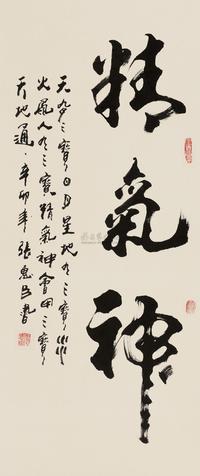 精氣神
天有三寶日月星地有三寶水
火風人有三寶精氣神會用三寶
天地通辛卯年張惠臣書